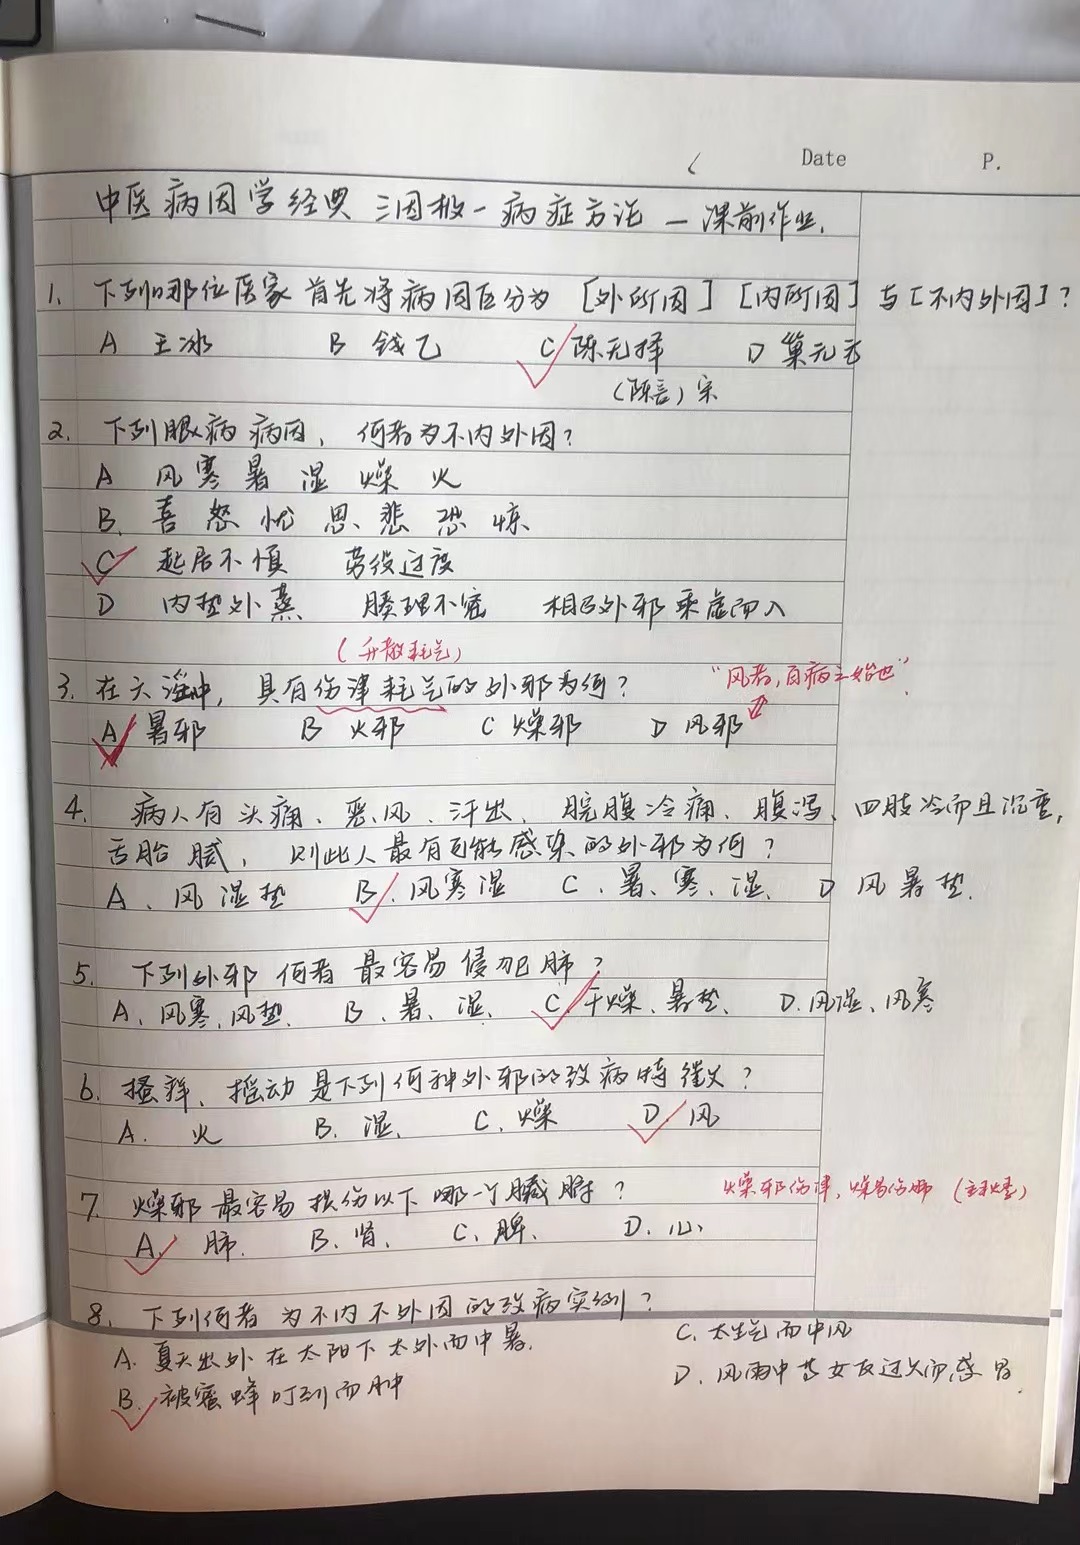 Date P.
中医病因学经典 三因极一病症方论 — 课前作业.
1. 下列哪位医家首先将病因区分为 [外所因] [内所因] 与 [不内外因]?
A 王冰 B 钱乙 C 陈无择 D 巢元方
(陈言) 宋
2. 下列眼病病因, 何者为不内外因?
A 风 寒 暑 湿 燥 火
B. 喜 怒 忧 思 悲 恐 惊
C 起居不慎 劳役过度
D 内热外蒸 腠理不密 相召外邪 乘虚而入
(升散耗气)
3. 在六淫中, 具有伤津耗气的外邪为何? "风者,百病之始也"
A 暑邪 B 火邪 C 燥邪 D 风邪
4. 病人有头痛、恶风、汗出、脘腹冷痛、腹泻、四肢冷而且沉重,
舌胎腻, 则此人最有可能感染的外邪为何?
A、风湿热 B、风寒湿 C、暑、寒、湿、 D 风暑热.
5. 下列外邪何者最容易侵犯肺?
A、风寒、风热. B、暑、湿、 C 干燥、暑热、 D.风湿、风寒
6. 搔痒、摇动是下列何种外邪的致病特徵?
A. 火 B. 湿. C、燥 D、风
7. 燥邪最容易损伤以下哪一个臓腑? 燥邪伤津,燥易伤肺
A、肺. B、肾、 C、脾、 D. 心
8. 下列何者为不内不外因的致病实例?
A. 夏天出外在太阳下太外而中暑. C. 太生气而中风
B. 被蜜蜂叮到而肿 D. 风雨中苦女友过久而感冒.